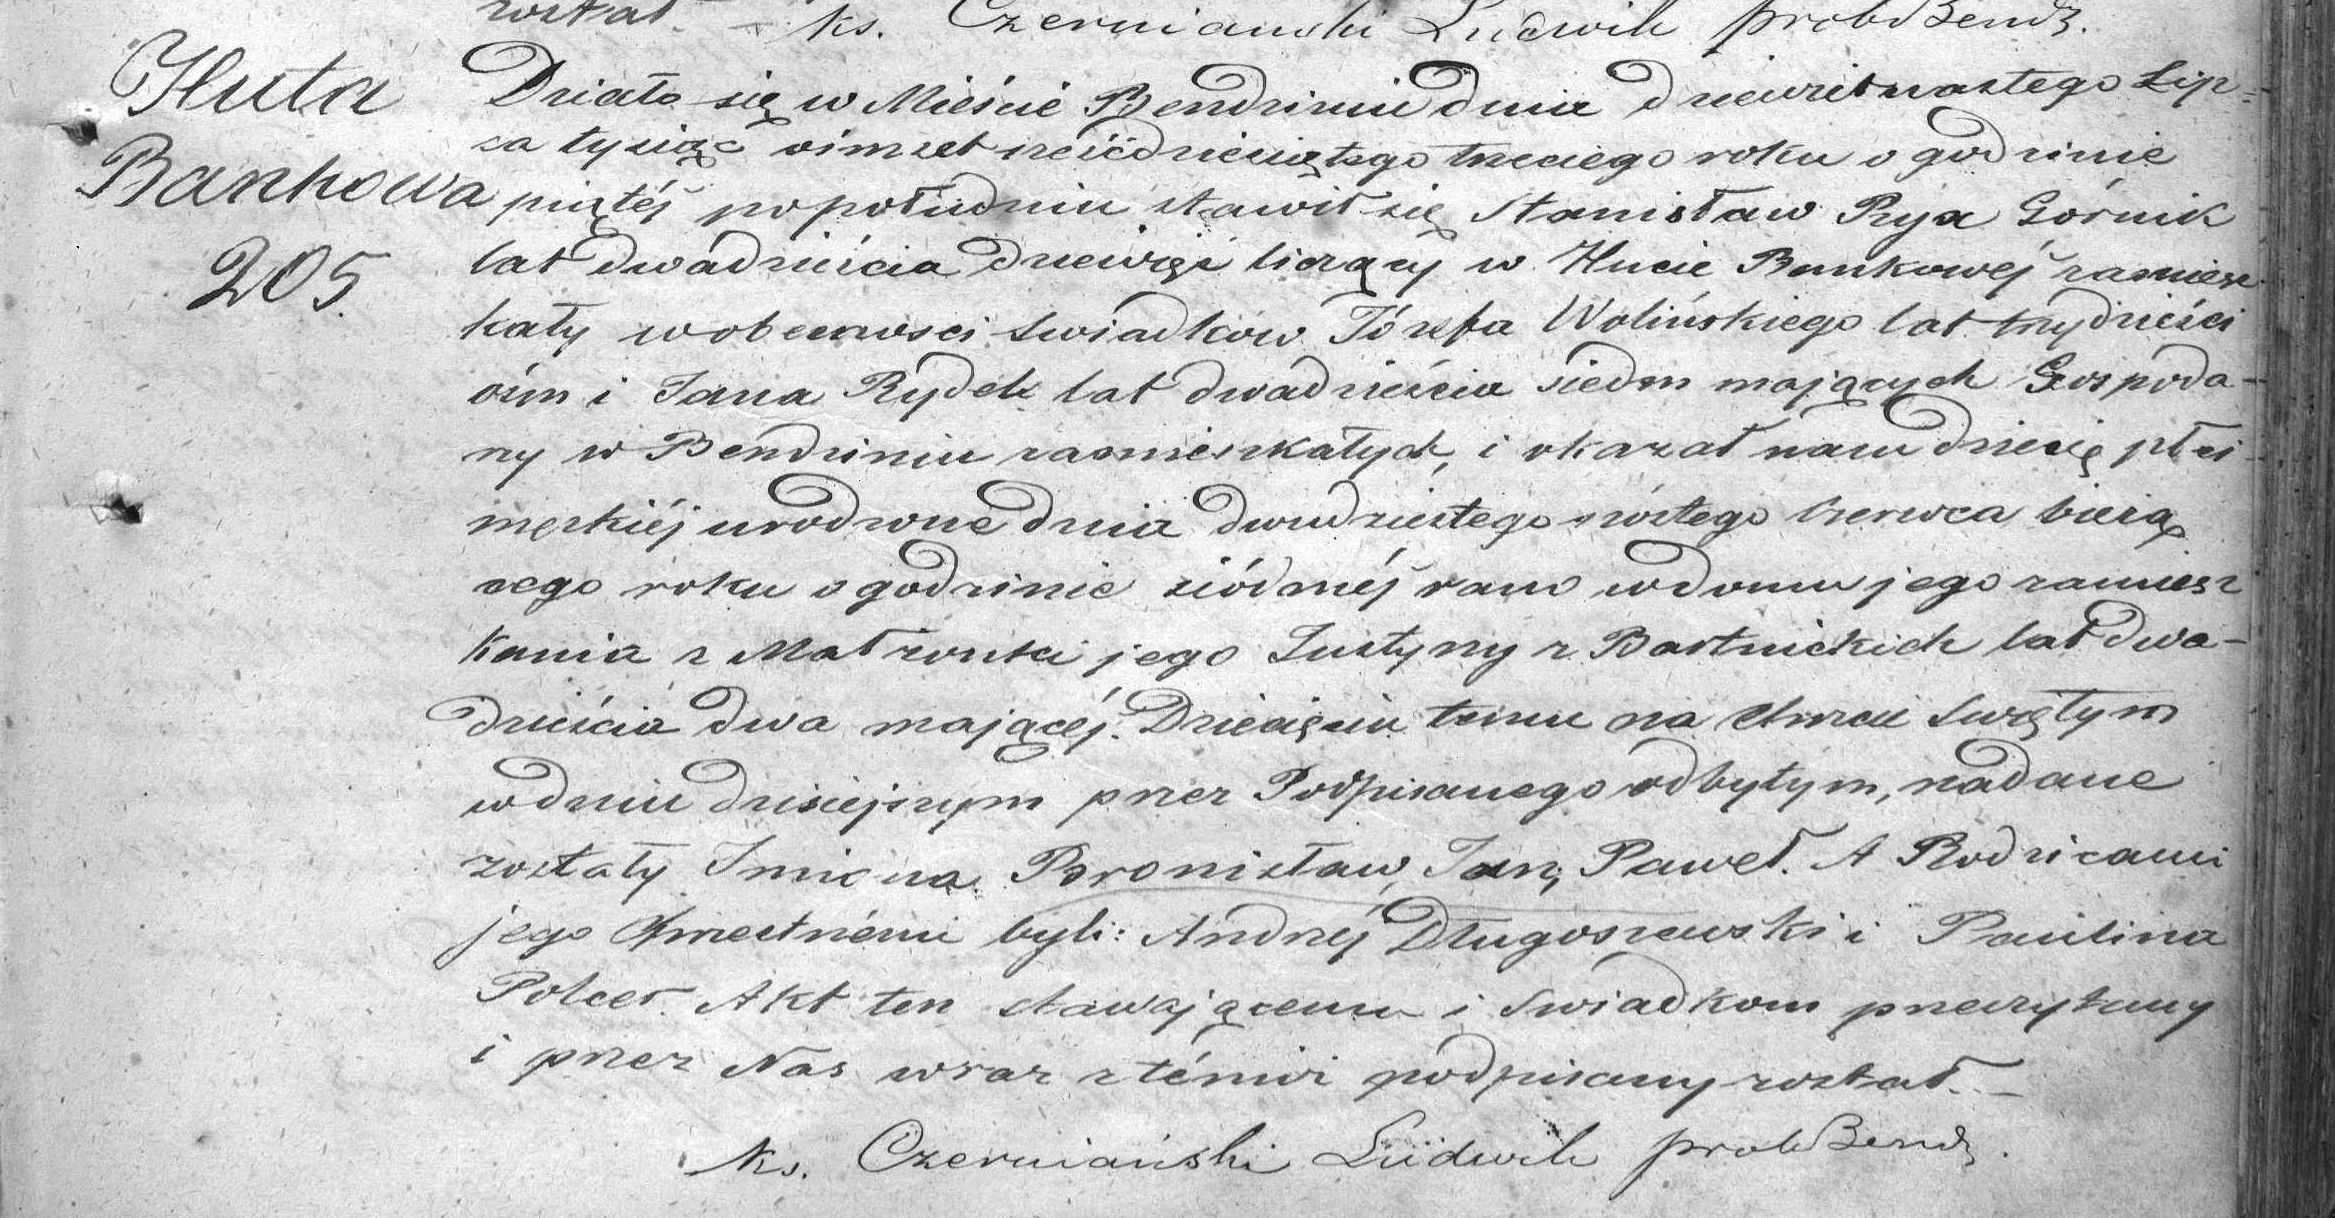 został – ks. Czerniański Ludwik prob Bendz.
Huta
Bankowa
205.
Działo się w Mieście Bendzinie dnia dziewietnastego Lip=
ca tysiąc ośmset sześćdziesiątego trzeciego roku o godzinie
piątéj popołudniu stawił się Stanisław Ryja Górnik
lat dwadzieścia dziewięć liczący w Hucie Bankowéj zamiesz
kały w obecnosci swiadkow Józefa Wolińskiego lat trzydzieści
ośm i Jana Rydek lat dwadzieścia siedm mających Gospoda-
rzy w Bendziniu zamieszkałych, i okazał nam dziecię płci
męzkiéj urodzone dnia dwudziestego szóstego Czerwca bieżą
cego roku o godzinie siódméj rano w domu jego zamiesz
kania z Małżonki jego Justyny z Bartnickich lat dwa-
dzieścia dwa mającéj. Dziecięciu temu na Chrzcie Swiętym
w dniu dzisiejszym przez Podpisanego odbytym, nadane
zostały Imiona Bronisław, Jan, Paweł. A Rodzicami
jego Chrzestnémi byli: Andrzéj Długoszewski i Paulina
Polcer. Akt ten stawającemu i swiadkom przeczytany
i przez Nas wraz z témiż podpisany został. –
ks. Czerniański Ludwik prob Bendz.